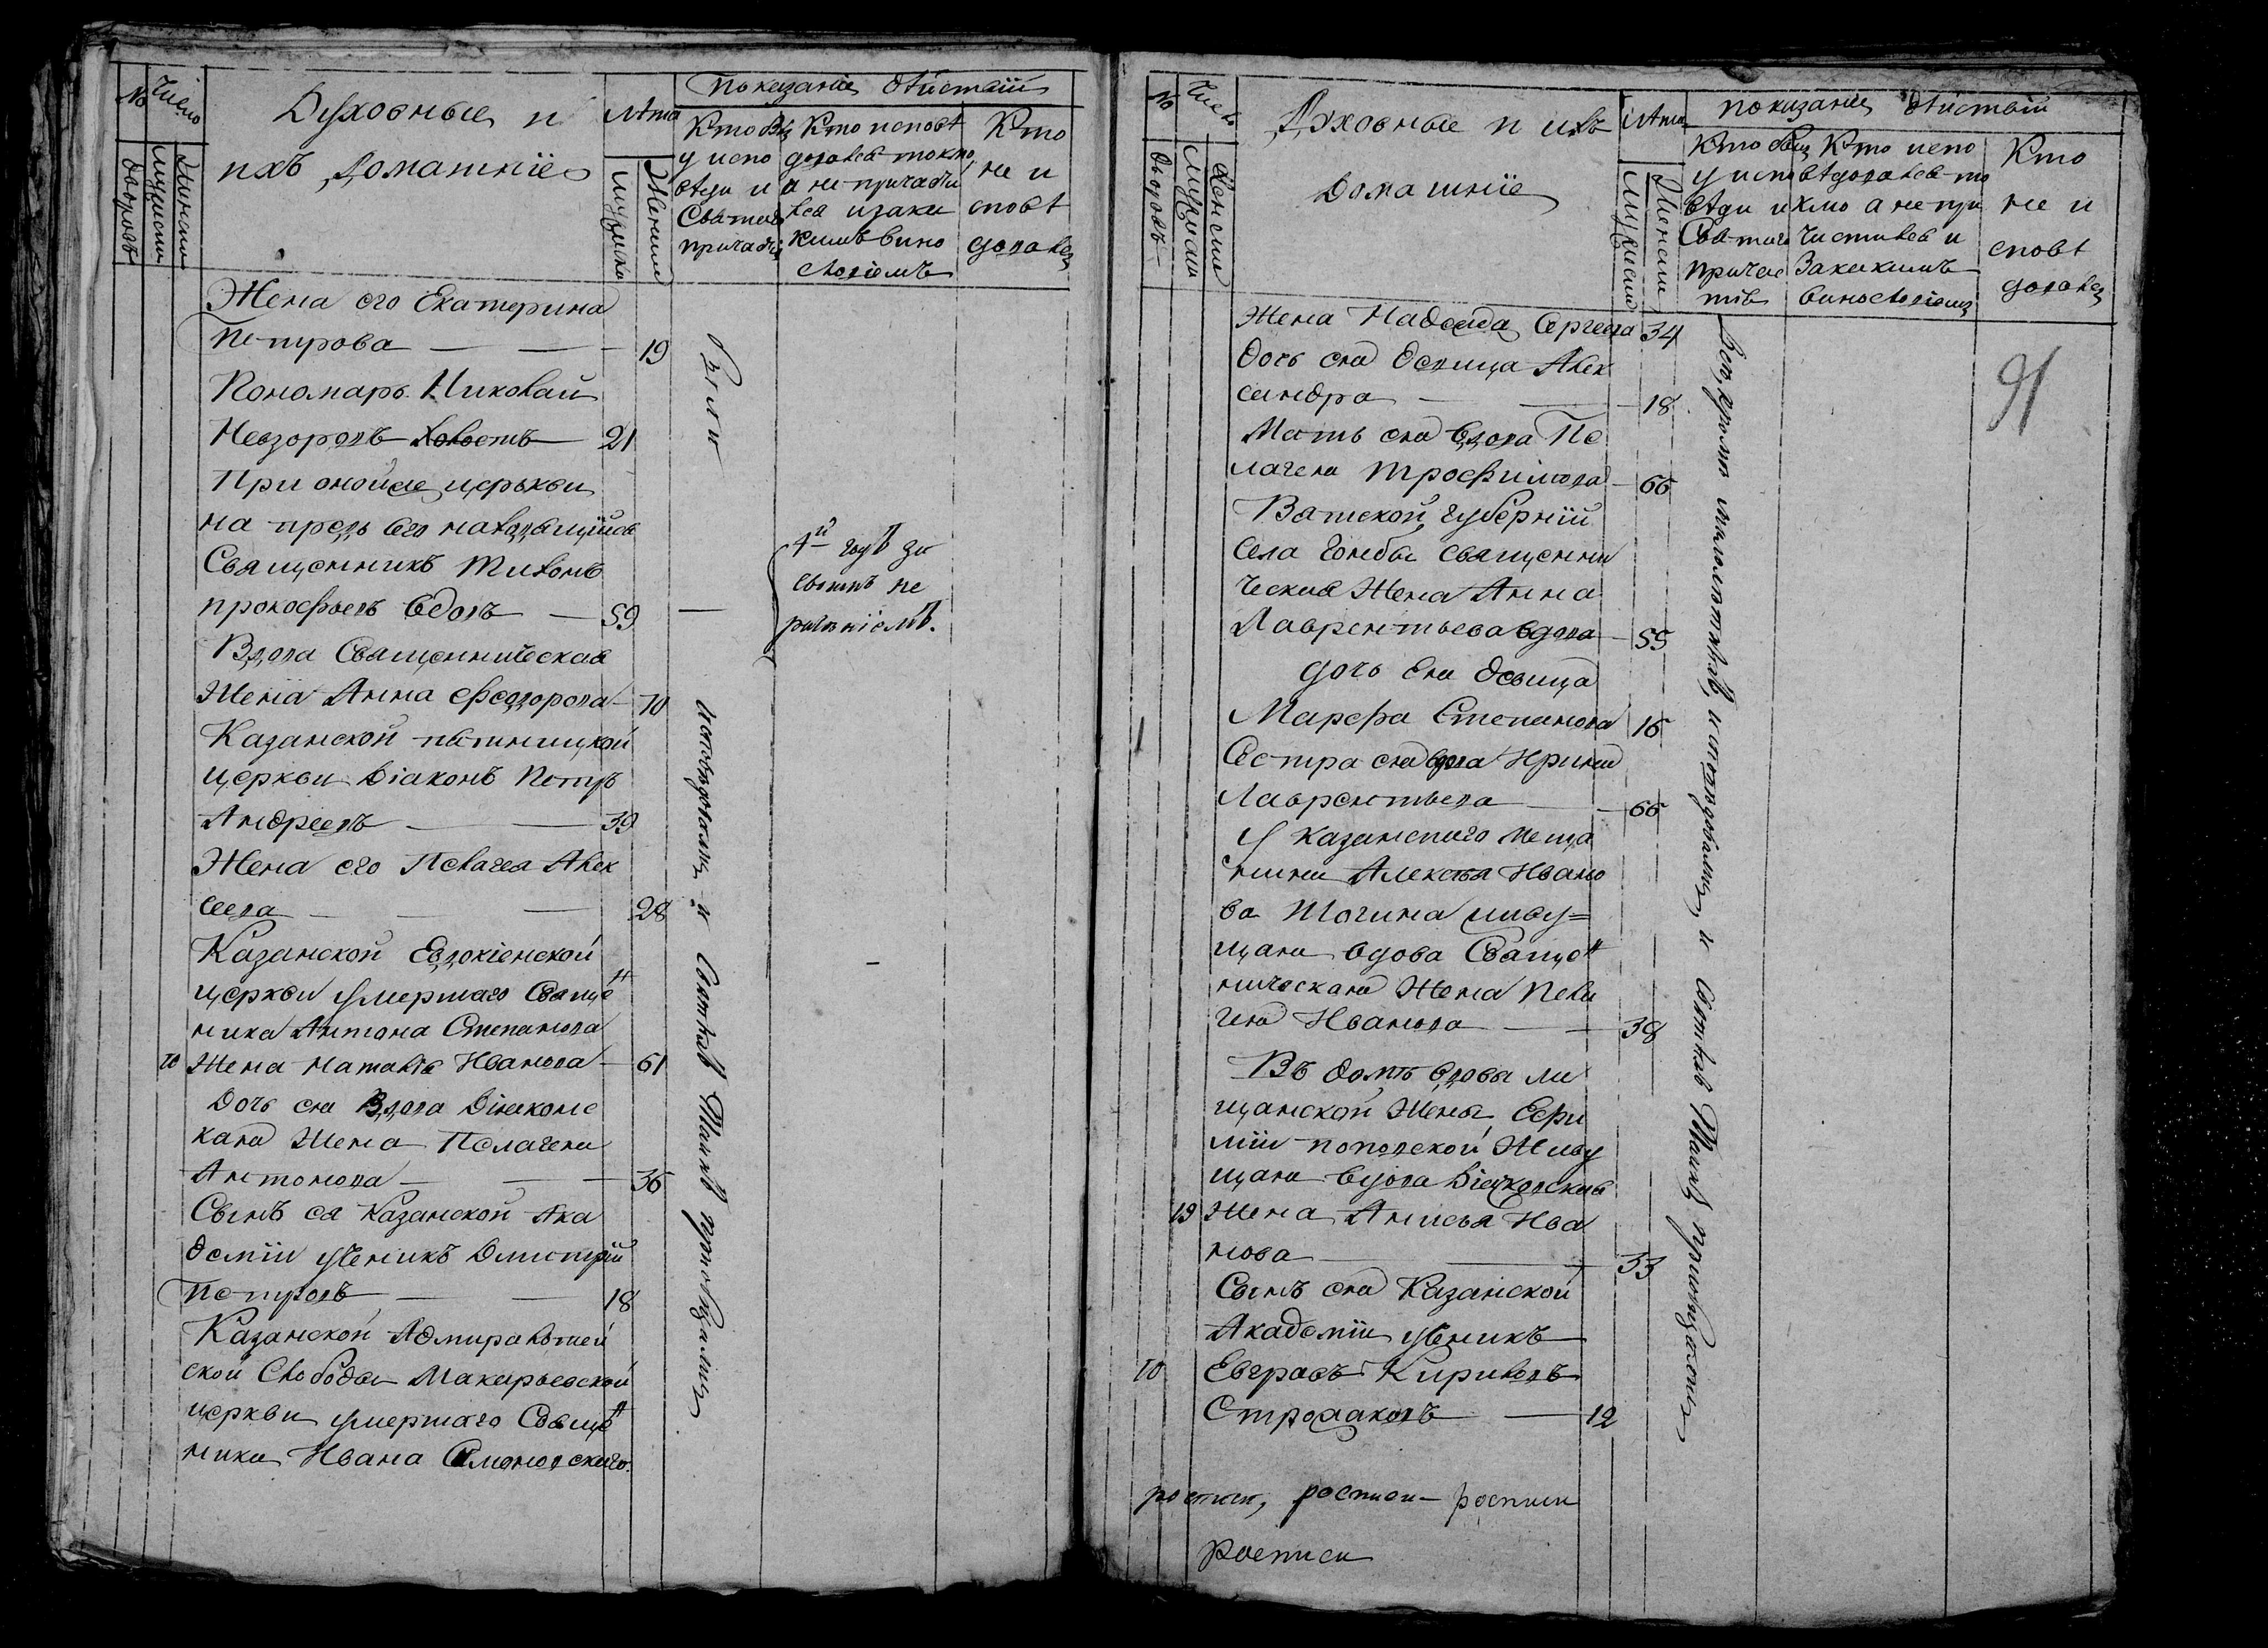 №
Число
Дворовъ
Мужескъ
Женскъ
Духовные и
ихъ домашніе
Лѣта
Мужеска
Женски
Показаніе дѣйствій
Кто былъ
у испо
вѣди и
Святаго
причастія
Кто исповѣ
довался токмо
а не причасти
лся и за каки
мъ вино
словіемъ
Кто
не и
сповѣ
довался
Жена его Екатерина
Петрова — — 19
Пономарь Николай
Невзоровъ холостъ 21
При оной же церькви
на предь сего находящійся
Священникъ Тихонъ
Прокофьевъ вдовъ — 59
—
4й годъ за
своимъ не
раченіемъ.
Вдова Священническая
Жена Анна Феодорова 70
Казанской пятницкой
церкви Діаконъ Петръ
Андреевъ — — 39
Жена его Пелагея Алек
сеева — — 28
Казанской Евдокіевской
церкви умершаго Свяще н
ника Антона Степанова
10 Жена Наталія Иванова — 61
Дочь ея Вдова Діаконс
кая Жена Пелагея
Антонова — — 36
Сынъ ея Казанской Ака
деміи ученикъ Дмитрій
Петровъ — — 18
Казанской Адмиралтей
ской Слободы Макарьевской
церкви умершаго Свяще н
ника Ивана
Были исповѣдованы и Святыхъ Таинъ
№
Число
Дворовъ
Мужеска
Женски
Духовные и ихъ
Домашніе
Лѣта
Мужески
Женски
показаніе дѣйствій
Кто былъ
у испо
вѣди и
Святаго
Причас
тія
Кто испо
вѣдовался то
кмо а не при
чистился и
За какимъ
винословіемъ
Кто
не и
сповѣ
довался
91
Жена Надежда Сергеева 34
дочь ея девица Алек
сандра — — 18
Мать ея вдова Пе
лагея Трофимова — 66
Вятской губерніи
села Гоньбы священни
ческая Жена Анна
Лаврентьева вдова — 55
дочь ея девица
Марфа Степанова 16
Сестра ея вдова Ирина
Лаврентьева — — 66
У казанскаго меща
нина Алексѣя Ивано
ва живу=
щая вдова Свяще н
ническая Жена Пела
гея Иванова — — 38
Въ домѣ вдовы ме
щанской Жены Ефи
міи поповской Живу
щая вдова Діячковская
19 Жена Анисья Ива
нова — — 33
Сынъ ея Казанской
Академіи ученикъ
10 Евграфъ Кириловъ
— 12
Всѣ, кромѣ малолѣтнихъ, исповѣдовались и Святыхъ Таинъ приобщались
росписи, росписи — росписи
Росписи